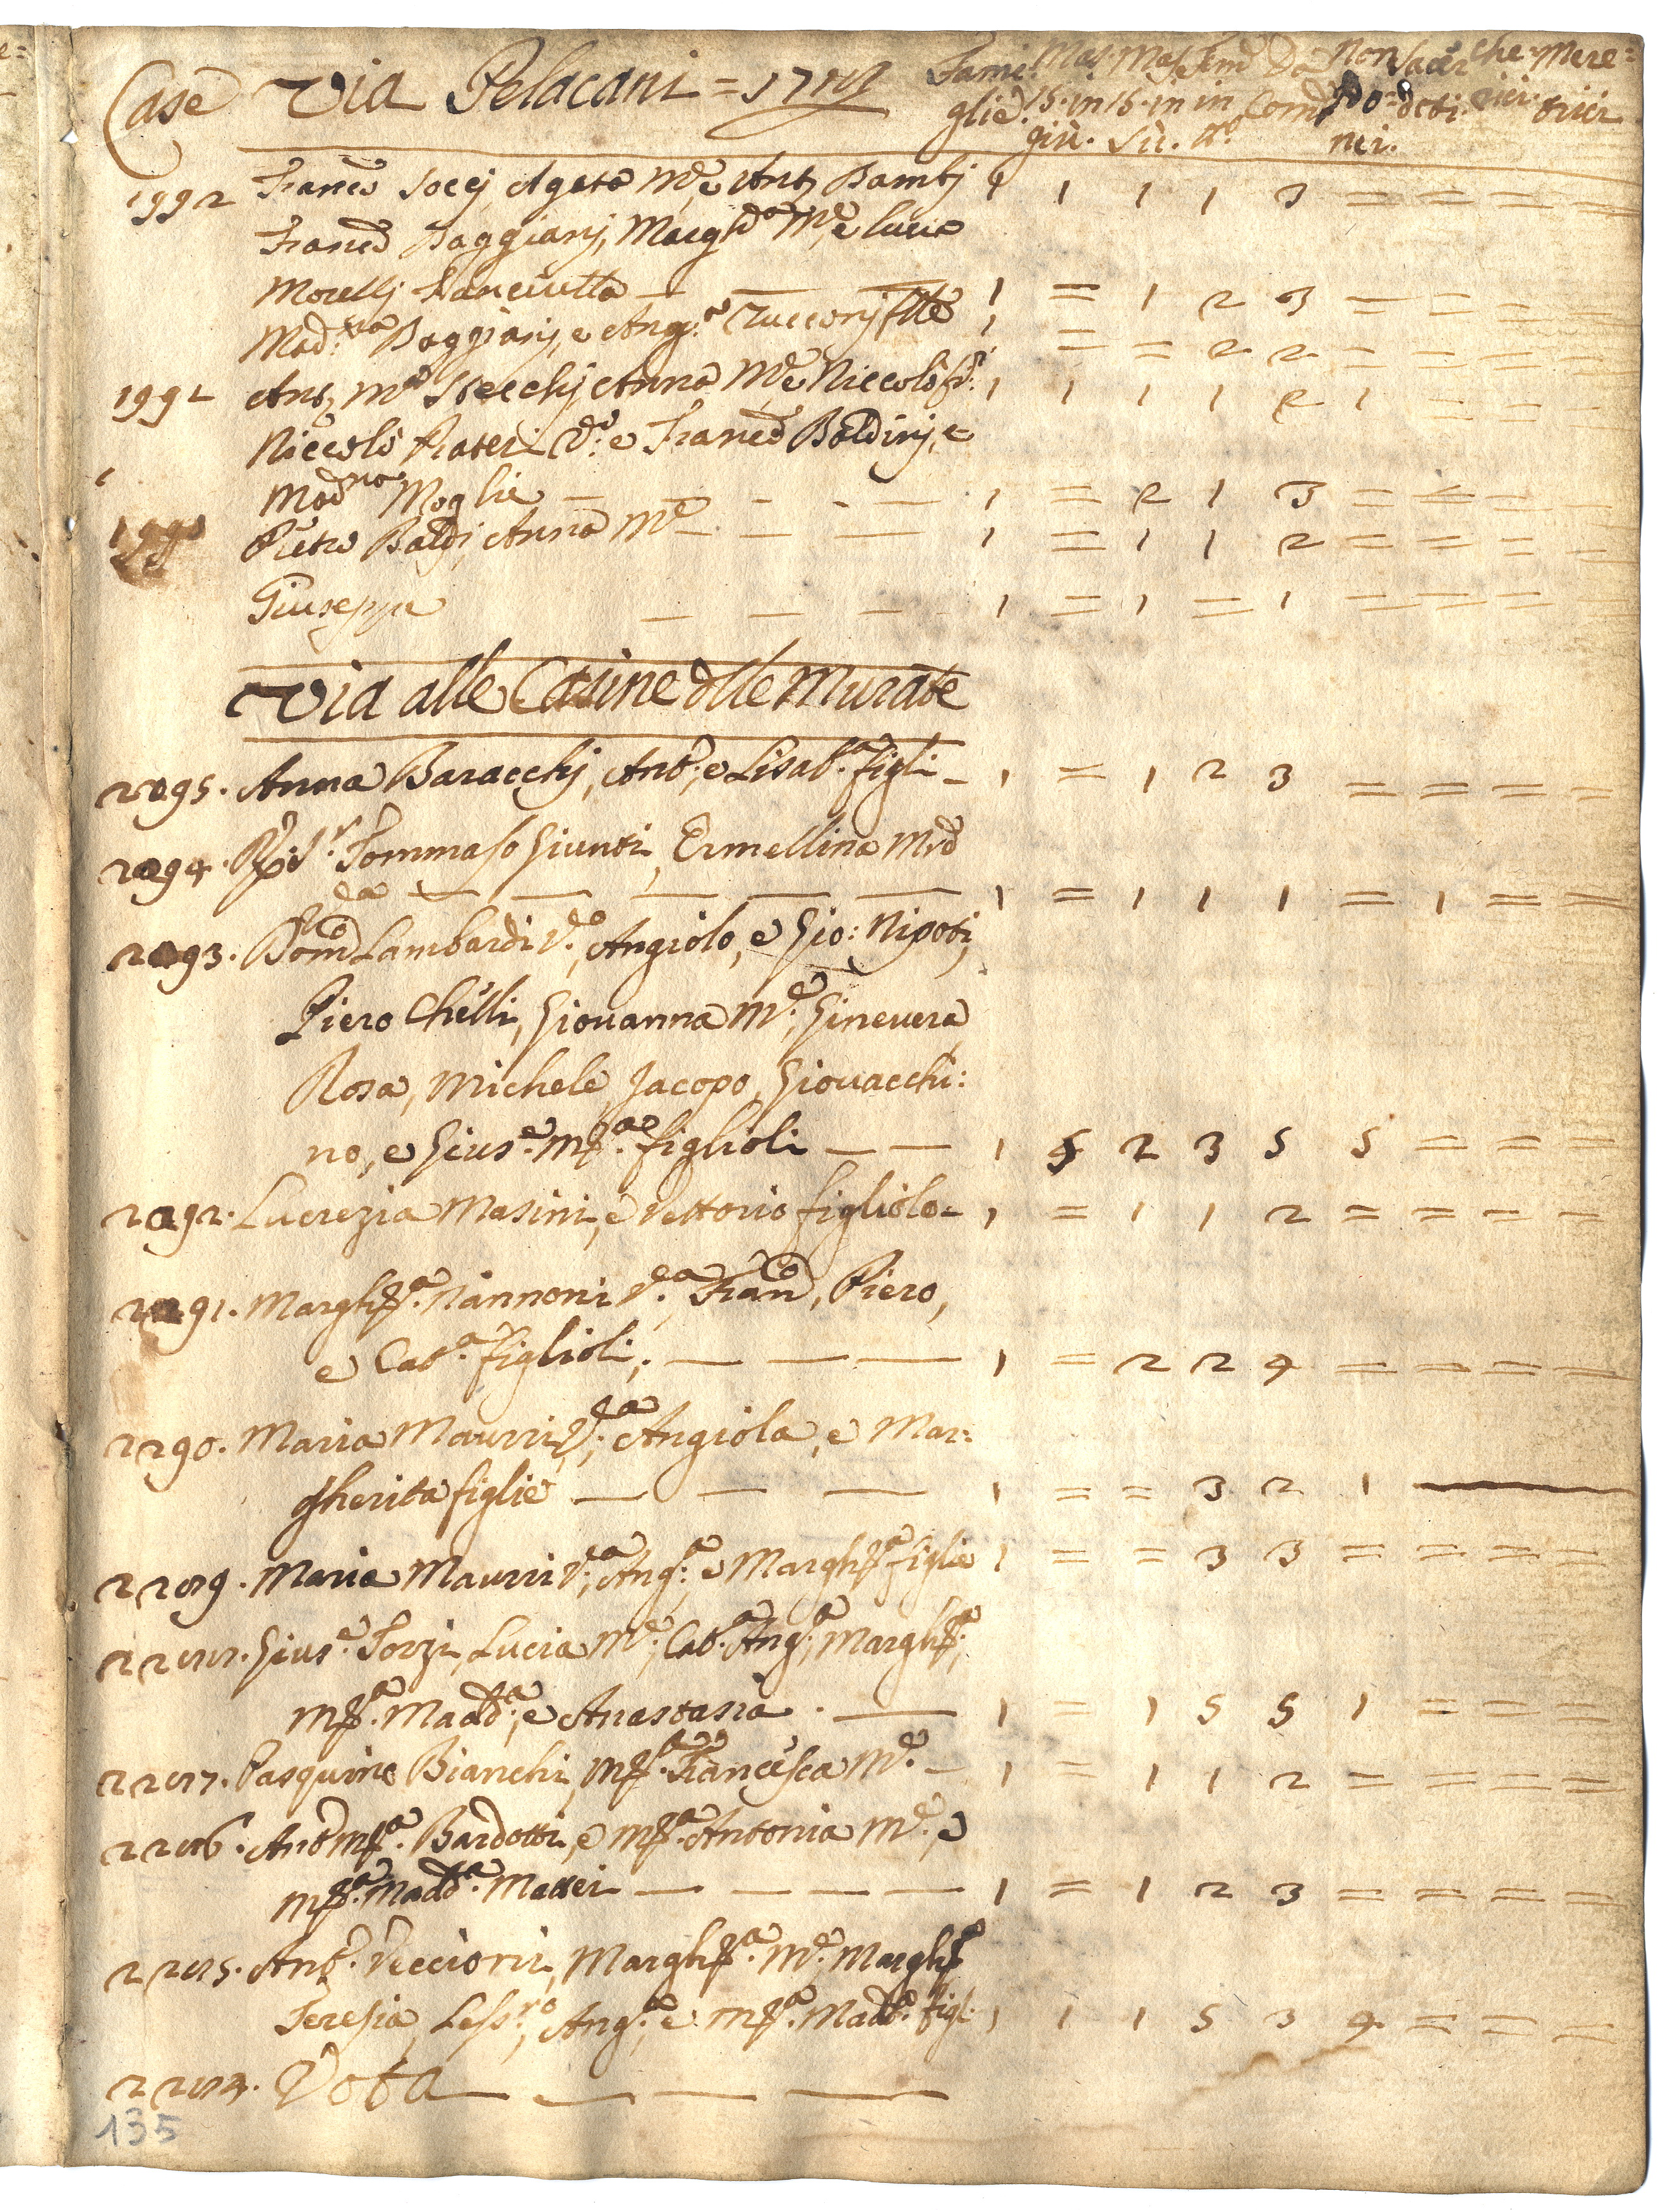 Case Via Pelacani = Fami: Mas. Mas. Fem: Da Non Sacer Che Mere=
glie. 15. in 15. in in Com: Do= doti. rici. trici
giù. sù. tto. nei.
1992 Franco Socej Agata Me. e Anto Bambj 1 1 1 1 3 = = = =
Franco Baggianj, Marghta Me. e Lucia
Morellj Fanciulla — — — 1 = 1 2 3 = = = =
Mad:na Baggianj, e Ang:a Zucconj flle 1 = = 2 2 = = = =
1992 Anto Ma Stecchj Anna Me. e Niccolò fi: 1 1 1 1 2 1 = = =
Niccolò Frateri Vo. e Franco Baldinj, e
Madna Moglie — — — 1 = 2 1 3 = = = =
Pietro Baldj, Anna Me — — — 1 = 1 1 2 = = = =
Giuseppe — — — 1 = 1 = 1 = = = =
Via alle Casine dlle Murate
2295. Anna Baracchj, Anto: e Lisaba. figli — 1 = 1 2 3 = = = =
2294. R: Sr. Tommaso Giunti, Ermellina Mrd
— — — — — 1 = 1 1 1 = 1 = =
2293. Domco Lambardi Vdo., Angiolo, e Gio: Nipoti,
Piero Chelli, Giovanna Me., Ginevera
Rosa, Michele, Jacopo, Giovacchi:
no, e Giuse. Mra. figlioli — — 1 5 2 3 5 5 = = =
2292. Lucrezia Masini, e Vettorio figliolo — 1 = 1 1 2 = = = =
2291. Marghra. Nannoni Vda. Franco, Piero,
e Cata. figlioli; — — — 1 = 2 2 4 = = = =
2290. Maria Maurri Vda. Angiola, e Mar:
gherita figlie — — — 1 = = 3 2 1 —
2289. Maria Maurri Va. Anga: e Marghra figlie 1 = = 3 3 = = = =
2288. Giuse. Torzi, Lucia Me., Cata. Anga., Marghra.,
Mra. Madda., e Anastasia. — 1 = 1 5 5 1 = = =
2287. Pasquino Bianchi, Mra. Francesca Me. — 1 = 1 1 2 = = = =
2286. Anto Mra. Bardotti, e Mra. Antonia Me., e
Mra. Madda. Mattei — — — — 1 = 1 2 3 = = = =
2285. Anto. Veccioni, Marghra. Me. Marghra
Teresia, Lessro., Anga., e Mra. Madda. figl. 1 1 1 5 3 4 = = =
2284. Vota — — — —
135